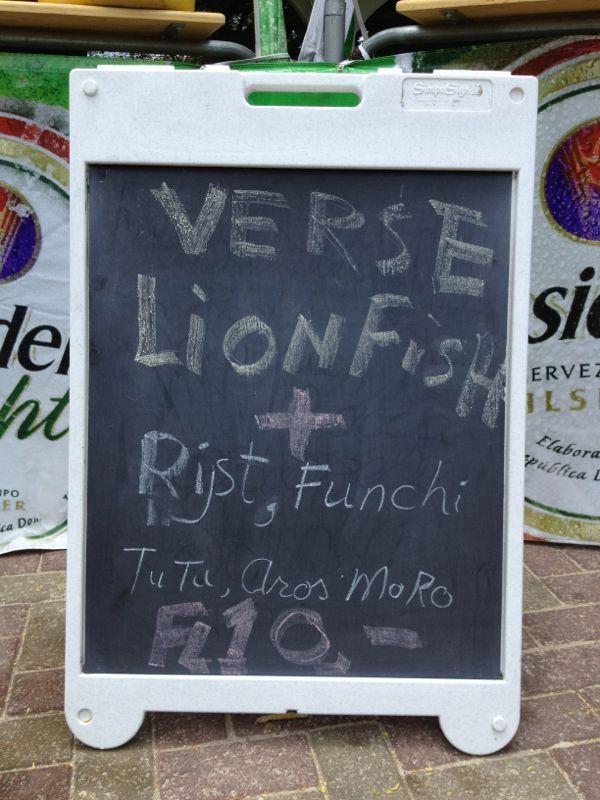 VERSE
LiONFiSH
+
Rijst, Funchi
TuTu, aros MoRo
FL10,-
del
ht
sid
ERVEZ
ILS
Elabora
epública D
ER
ca Dom